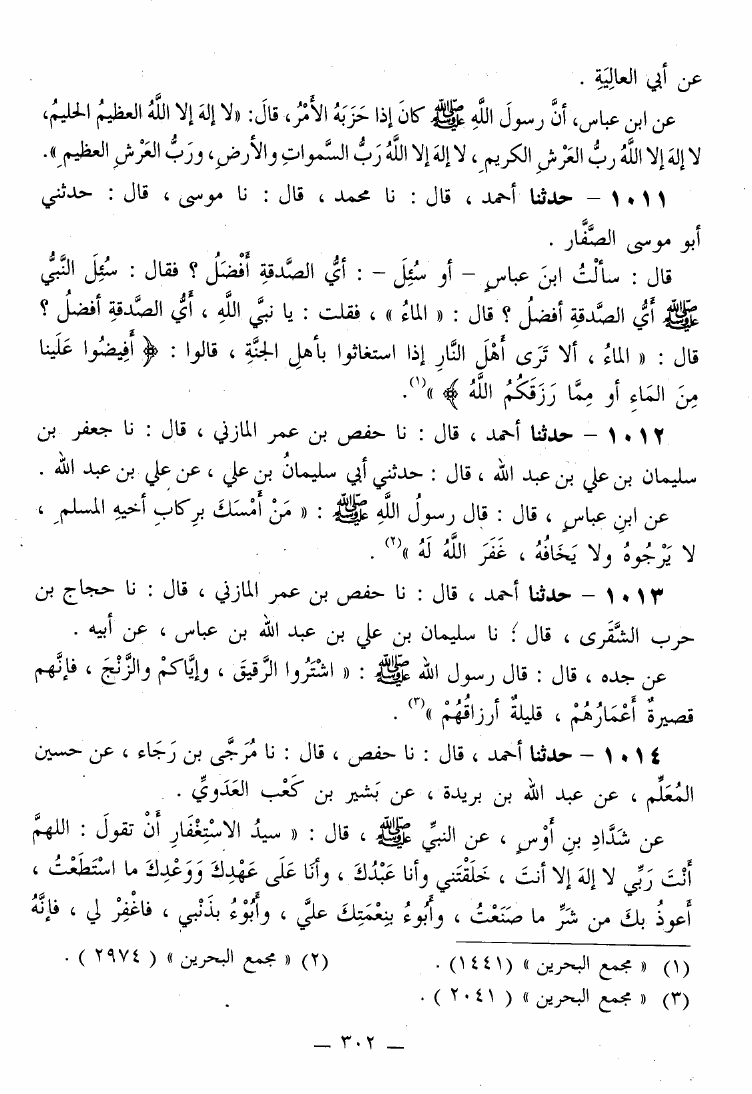 عن أبي العالِيَةِ .
عن ابن عباس، أنَّ رسولَ اللَّهِ ﷺ كانَ إذا حَزَبَهُ الأَمْرُ، قالَ: «لا إلهَ إلا اللَّهُ العظيمُ الحليمُ،
لا إلهَ إلا اللَّهُ ربُّ العَرْشِ الكريمِ، لا إلهَ إلا اللَّهُ رَبُّ السَّمواتِ والأرضِ، ورَبُّ العَرْشِ العظيمِ».
١٠١١ – حدثنا أحمد ، قال : نا محمد ، قال : نا موسى ، قال : حدثني
أبو موسى الصَّفَّار .
قال : سألْتُ ابنَ عباسٍ – أو سُئِلَ – : أيُّ الصَّدقةِ أَفْضَلُ ؟ فقال : سُئِلَ النَّبيُّ
ﷺ أَيُّ الصَّدقةِ أفضلُ ؟ قال : « الماءُ » ، فقلت : يا نبيَّ اللَّهِ ، أَيُّ الصدقةِ أفضلُ ؟
قال : « الماءُ ، ألا تَرَى أَهْلَ النَّارِ إذا استغاثوا بأهلِ الجنَّةِ ، قالوا : ﴿ أَفِيضُوا عَلَينا
مِنَ المَاءِ أو مِمَّا رَزَقَكُمُ اللَّهُ ﴾ »(١).
١٠١٢ – حدثنا أحمد ، قال : نا حفص بن عمر المازني ، قال : نا جعفر بن
سليمان بن علي بن عبد الله ، قال : حدثني أبي سليمانُ بن علي ، عن علي بن عبد الله .
عن ابنِ عباسٍ ، قال : قال رسولُ اللَّهِ ﷺ : « مَنْ أَمْسَكَ بركابِ أخيهِ المسلمِ ،
لا يَرْجُوهُ ولا يَخَافُهُ ، غَفَرَ اللَّهُ لَهُ »(٢) .
١٠١٣ – حدثنا أحمد ، قال : نا حفص بن عمر المازني ، قال : نا حجاج بن
حرب الشَّقَرى ، قال : نا سليمان بن علي بن عبد الله بن عباس ، عن أبيه .
عن جده ، قال : قال رسول الله ﷺ : « اشْتَرُوا الرَّقيقَ ، وإيَّاكمْ والزَّنْجَ ، فإنَّهم
قصيرةٌ أَعْمَارُهُمْ ، قليلةٌ أرزاقُهُمْ »(٣) .
١٠١٤ – حدثنا أحمد ، قال : نا حفص ، قال : نا مُرَجَّى بن رَجَاء ، عن حسين
المُعَلِّم ، عن عبد الله بن بريدة ، عن بَشير بن كَعْب العَدَويِّ .
عن شَدَّادِ بنِ أَوْسٍ ، عن النبيِّ ﷺ ، قال : « سيدُ الاسْتِغْفَارِ أَنْ تقولَ : اللهمَّ
أَنْتَ رَبِّي لا إلهَ إلا أنتَ ، خَلَقْتَني وأنا عَبْدُكَ ، وأنَا عَلَى عَهْدِكَ وَوَعْدِكَ ما اسْتَطَعْتُ ،
أعوذُ بكَ من شَرِّ ما صَنَعْتُ ، وأَبُوءُ بِنِعْمَتِكَ عليَّ ، وأَبُوْءُ بذَنْبي ، فاغْفِرْ لي ، فإنَّهُ
(١) « مجمع البحرين » (١٤٤١) . (٢) « مجمع البحرين » ( ٢٩٧٤ ) .
(٣) « مجمع البحرين » ( ٢٠٤١ ) .
– ٣٠٢ –